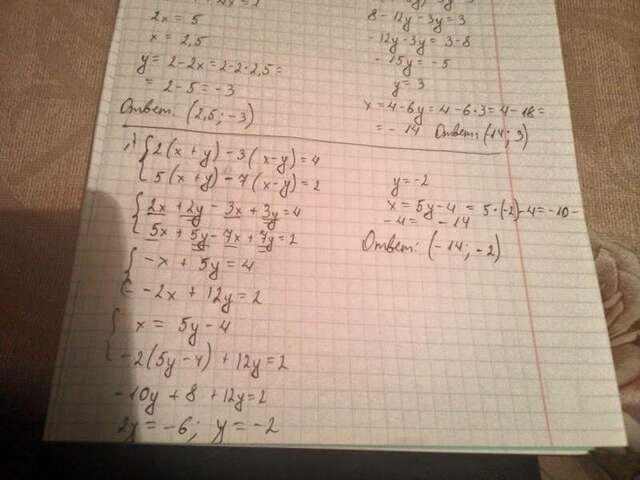 2x = 5
x = 2,5
y = 2 - 2x = 2 - 2·2,5 =
= 2 - 5 = -3
Ответ: (2,5; -3)
8 - 12y - 3y = 3
-12y - 3y = 3 - 8
-15y = -5
y = 3
x = 4 - 6y = 4 - 6·3 = 4 - 18 =
= -14 Ответ: (14; 3)
{ 2(x + y) - 3(x - y) = 4
5(x + y) - 7(x - y) = 2
{ 2x + 2y - 3x + 3y = 4
5x + 5y - 7x + 7y = 2
{ -x + 5y = 4
-2x + 12y = 2
{ x = 5y - 4
-2(5y - 4) + 12y = 2
-10y + 8 + 12y = 2
2y = -6; y = -2
y = -2
x = 5y - 4 = 5·(-2) - 4 = -10 -
-4 = -14
Ответ: (-14; -2)